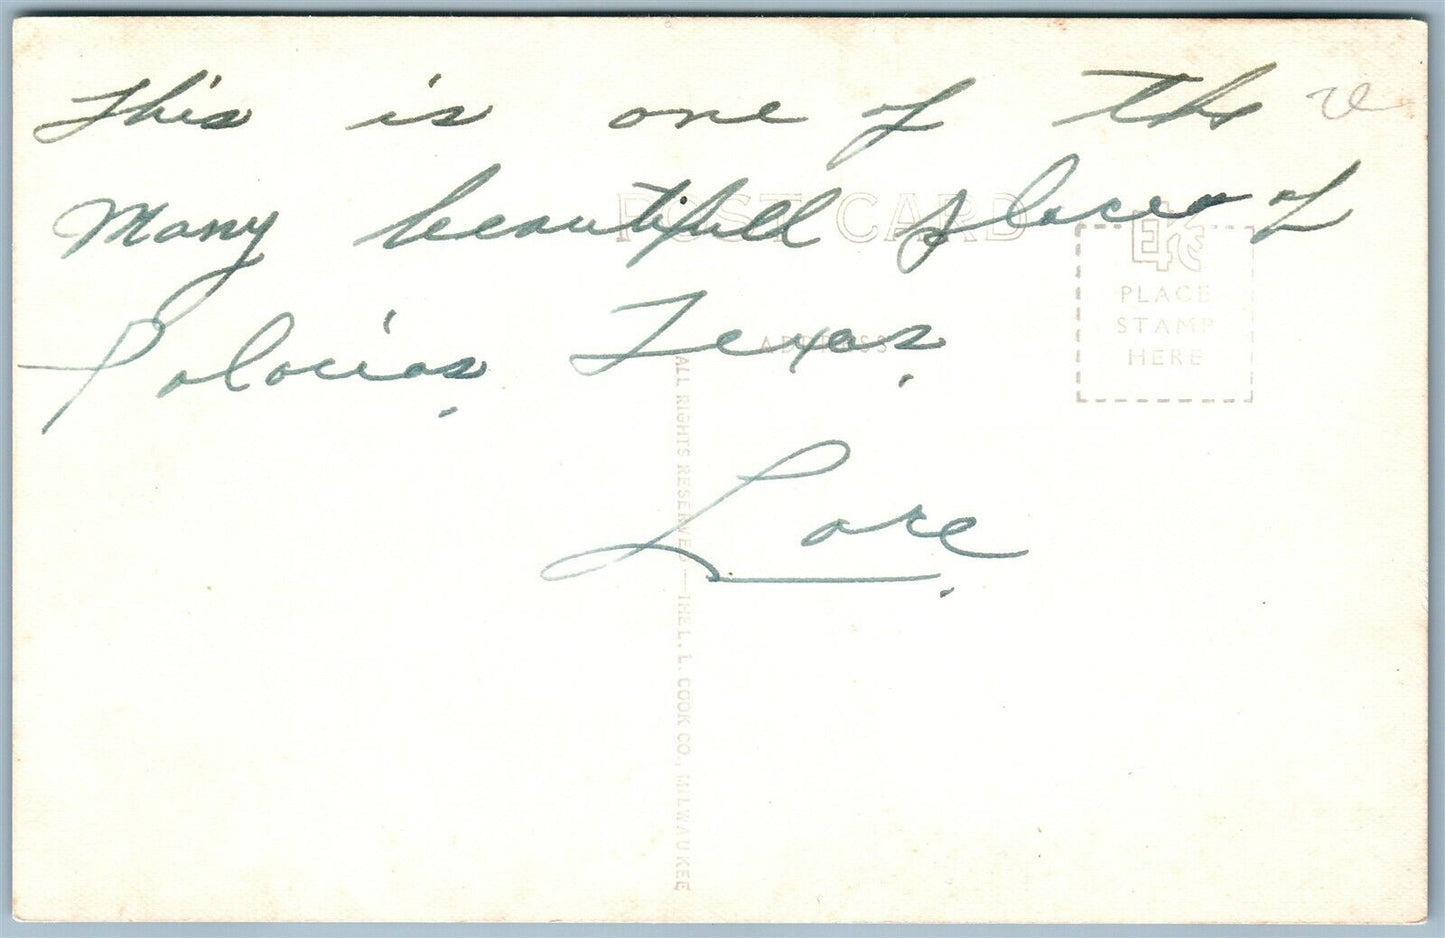 This is one of the
many beautifull places of
Palacias, Texas.
Lore.
POST CARD
ADDRESS
EKC
PLACE
STAMP
HERE
ALL RIGHTS RESERVED — THE L. L. COOK CO., MILWAUKEE